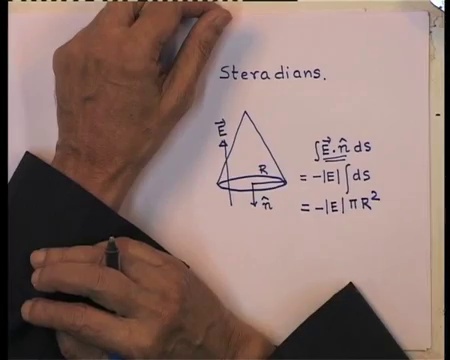 Steradians.
E⃗
R
n̂
∫E⃗.n̂ ds
= -|E| ∫ds
= -|E| π R²